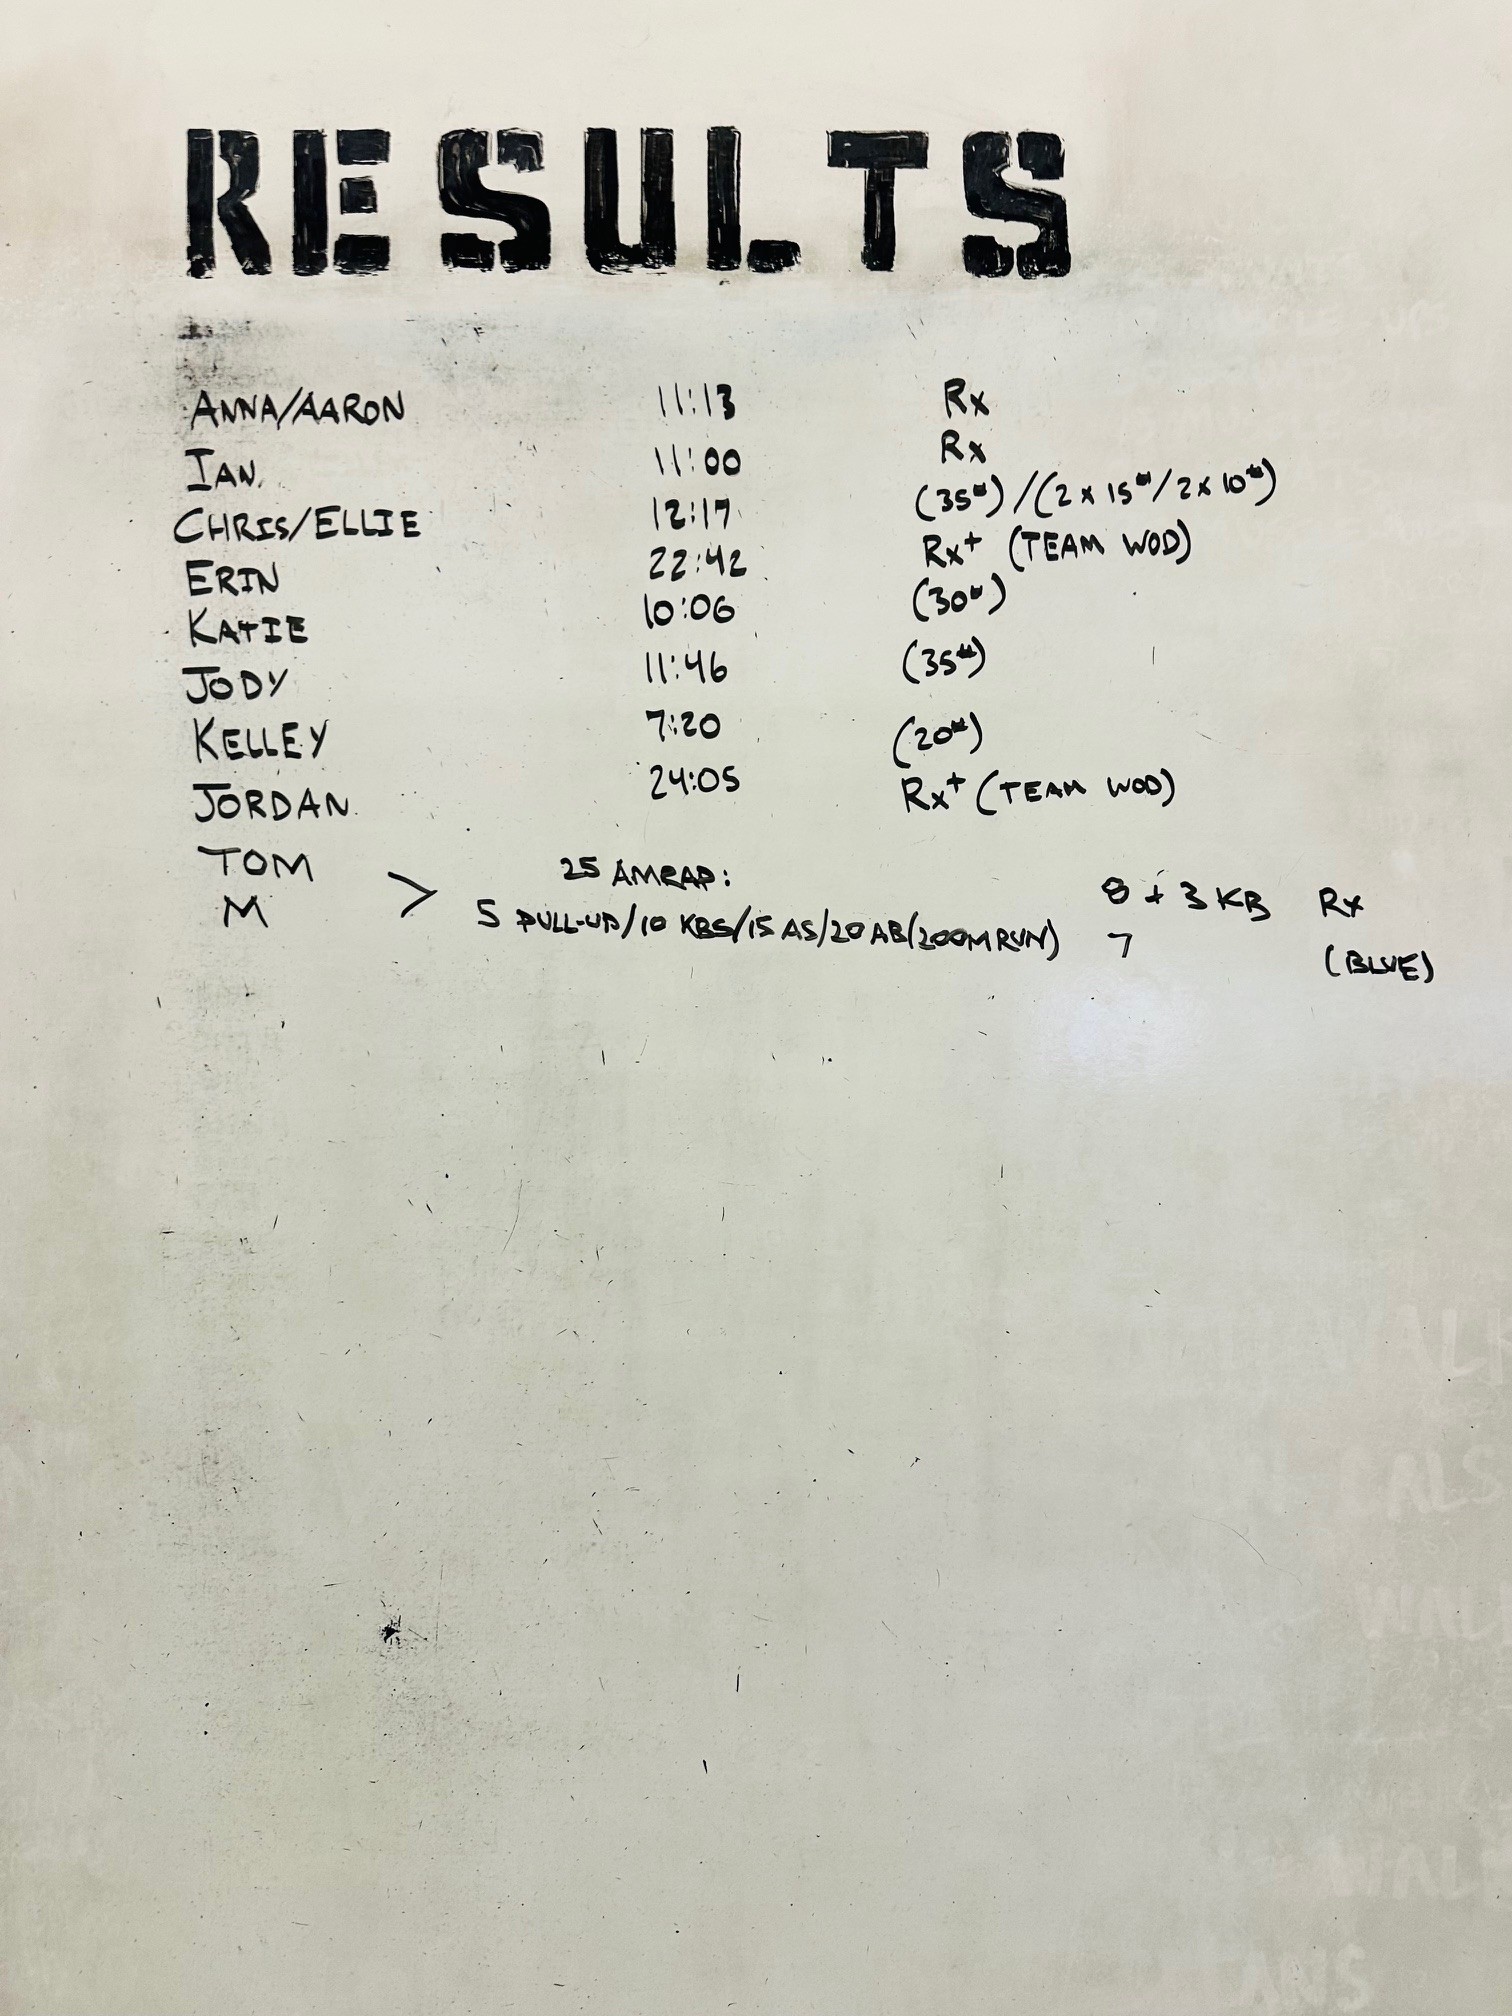 RESULTS
ANNA/AARON 11:13 Rx
IAN 11:00 Rx
CHRIS/ELLIE 12:17 (35#)/(2 x 15#/2 x 10#)
ERIN 22:42 Rx+ (TEAM WOD)
KATIE 10:06 (30#)
JODY 11:46 (35#)
KELLEY 7:20 (20#)
JORDAN 24:05 Rx+ (TEAM WOD)
TOM > 25 AMRAP: 8 + 3 KB Rx
M 5 PULL-UP/10 KBS/15 AS/20 AB/(200M RUN) 7 (BLUE)
WALK
CALS
WALK
WALK